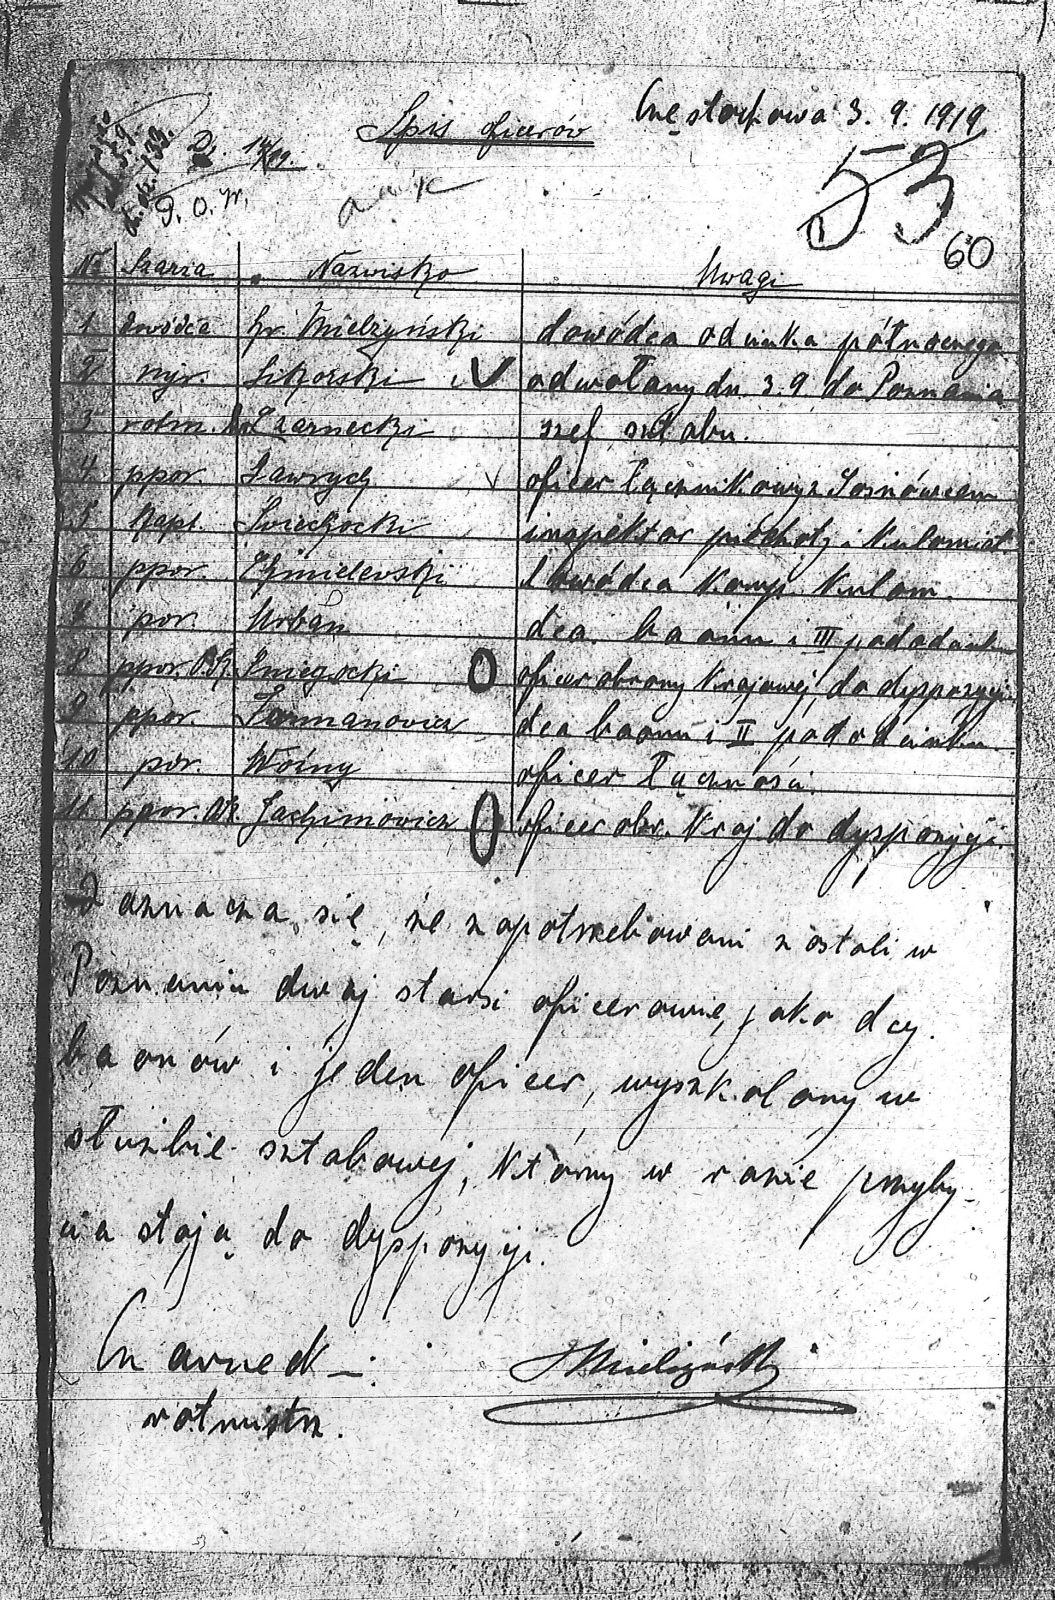 Częstochowa 3. 9. 1919
Spis oficerów
P. O. W.
53
60
No Szarża Nazwisko Uwagi
1 dowódca hr. Mielżyński dowódca odcinka północnego
2 mjr. Sikorski V odwołany dn. 3. 9 do Poznania
3 rotm. Czarnecki szef sztabu.
4 ppor. Ławrycz oficer łącznikowy z Sosnowcem
5 kapt. Świechocki inspektor piechoty i kulomiot
6 ppor. Chmielewski dowódca komp. kulom.
7 por. Urban dca. baonu i III pododcinka
8 ppor. O.K. Śniegocki O oficer obrony krajowej, do dyspozycji
9 ppor. Furmanowicz dca baonu i II pododcinka
10 por. Woźny oficer łączności.
11 ppor. O.K. Jachimowicz O oficer obr. kraj do dyspozycji.
Zaznacza się, że zapotrzebowani zostali w
Poznaniu dwaj starsi oficerowie, jako dcy.
baonów i jeden oficer, wyszkolony w
służbie sztabowej, którzy w razie przyby-
cia stoją do dyspozycji.
Czarneck
rotmistrz.
Mielżyński
53